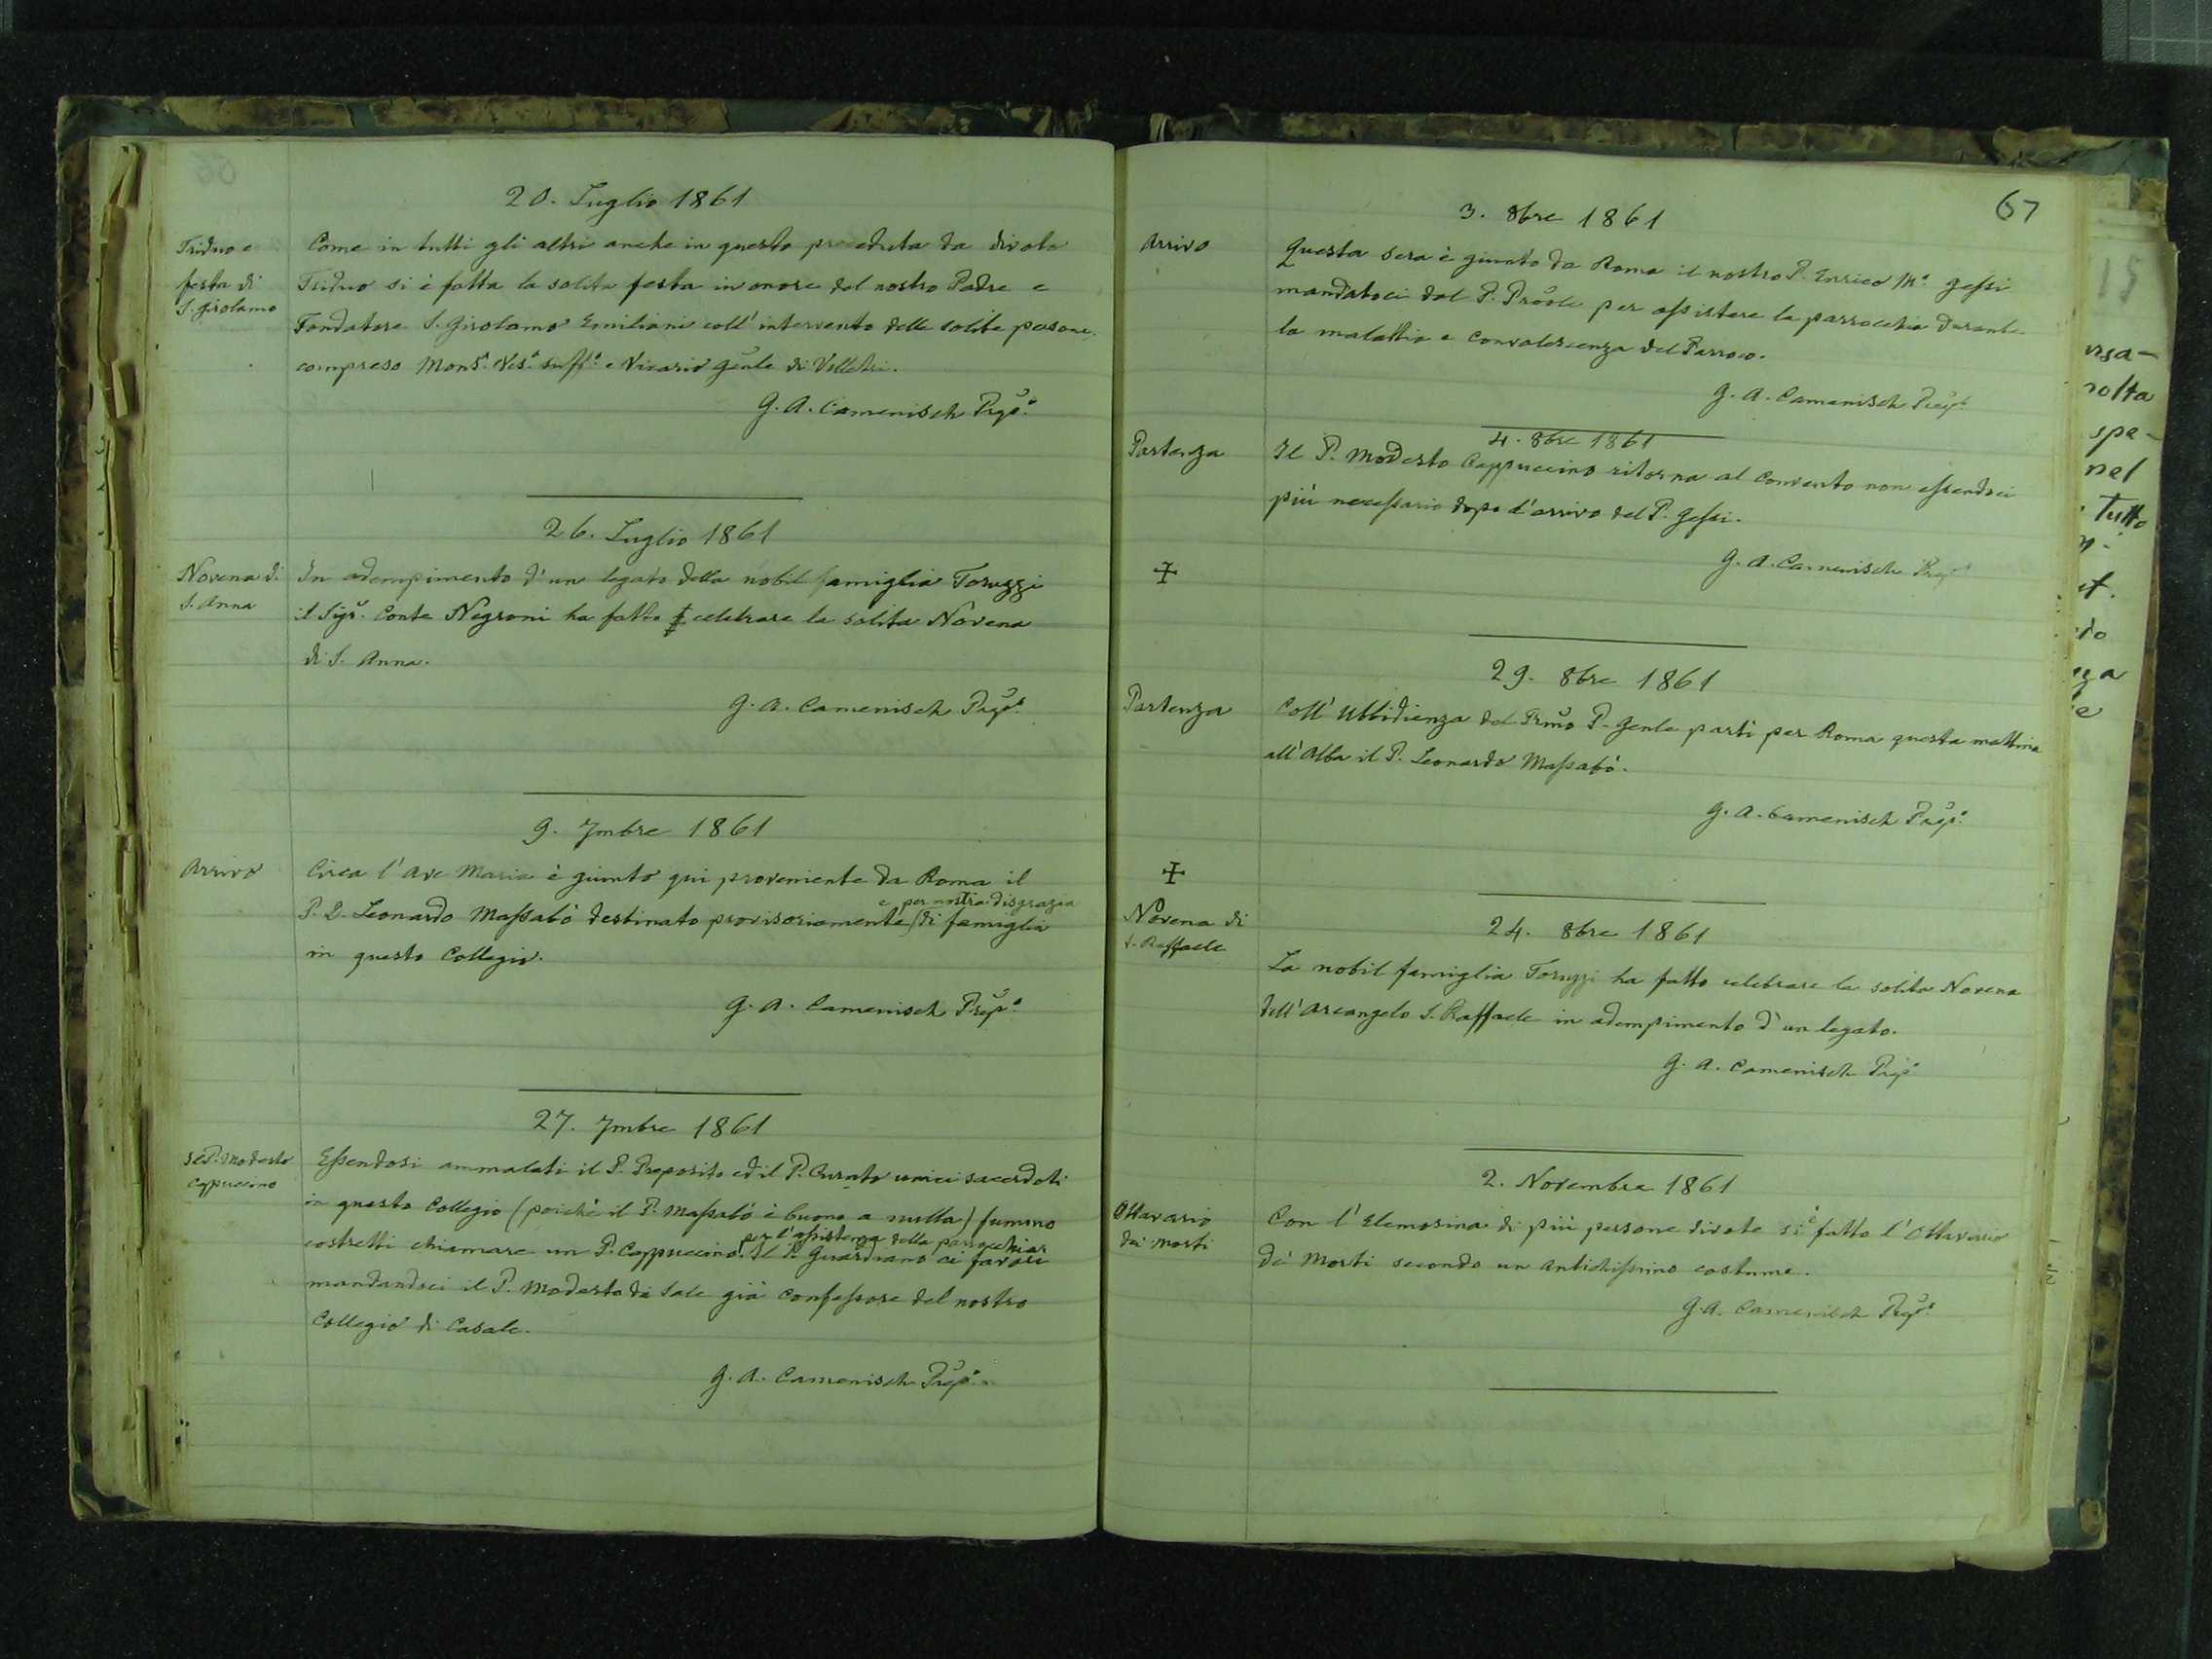 20. Luglio 1861
Triduo e
festa di
S. Girolamo
Come in tutti gli altri anche in questo preceduta da divoto
Triduo si è fatta la solita festa in onore del nostro Padre e
Fondatore S. Girolamo Emiliani coll' intervento delle solite persone,
compreso Mons.r Ves.o suff.o e Vicario Gēnle di Velletri.
G. A. Camenisch Prep.o
26. Luglio 1861
Novena di
S. Anna
In adempimento d'un legato della nobil famiglia Toruzzi
il Sigr. Conte Negroni ha fatto celebrare la solita Novena
di S. Anna.
G. A. Camenisch Prep.o
9. 7mbre 1861
Arrivo
Circa l'Ave Maria è giunto qui proveniente da Roma il
e per nostra disgrazia
P. D. Leonardo Massabò destinato provisoriamente di famiglia
in questo Collegio.
G. A. Camenisch Prep.o
27. 7mbre 1861
Il P. Modesto
Cappuccino
Essendosi ammalati il P. Preposito ed il P. Curato unici sacerdoti
in questo Collegio (poichè il P. Massabò è buono a nulla) fummo
per l'assistenza della parrocchia
costretti chiamare un P. Cappuccino. Il P. Guardiano ci favorì
mandandoci il P. Modesto da Sale già confessore del nostro
Collegio di Casale.
G. A. Camenisch Prep.o
67
3. 8bre 1861
Arrivo
Questa sera è giunto da Roma il nostro P. Enrico M.a Gessi
mandatoci dal P. Provle per assistere la parrocchia durante
la malattia e convalescenza del Parroco.
G. A. Camenisch Prep.o
4. 8bre 1861
Partenza
Il P. Modesto Cappuccino ritorna al Convento non essendoci
più necessario dopo l'arrivo del P. Gessi.
G. A. Camenisch Prep.o
✠
29. 8bre 1861
Partenza
Coll' Ubbidienza del Rmo P. Genle partì per Roma questa mattina
all'Alba il P. Leonardo Massabò.
G. A. Camenisch Prep.o
✠
24. 8bre 1861
Novena di
S. Raffaele
La nobil famiglia Toruzzi ha fatto celebrare la solita Novena
dell'Arcangelo S. Raffaele in adempimento d'un legato.
G. A. Camenisch Prep.o
2. Novembre 1861
Ottavario
dei Morti
Con l'Elemosina di più persone divote si è fatto l'Ottavario
de' Morti secondo un antichissimo costume.
G. A. Camenisch Prep.o
15
nolta
spe-
nel
Tutto